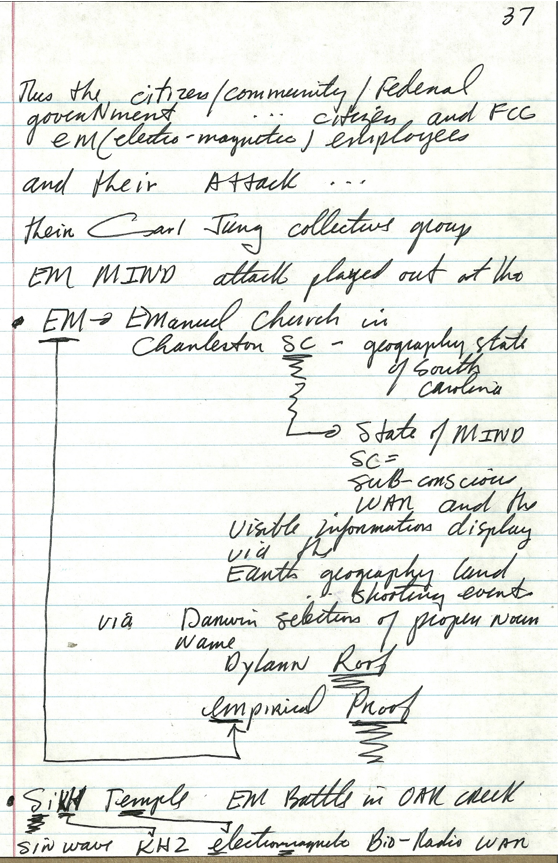 37
Thus the citizen/community/Federal
government ... citizen and FCC
EM(electro-magnetic) employees
and their Attack ...
their Carl Jung collective group
EM MIND attack played out at the
• EM → EManuel Church in
Charleston SC - geography state
of South
Carolina
→ State of MIND
SC=
sub-conscious
WAR and the
visible information display
via the
Earth geography land
.. shooting events
via Darwin selection of proper Noun
Name
Dylann Roof
empirical Proof
• SiKH Temple EM Battle in OAK CREEK
sin wave KHZ electromagnetic Bio-Radio WAR